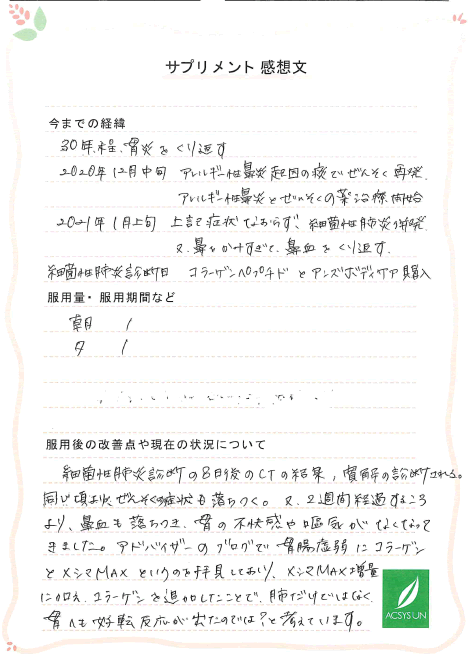 サプリメント 感想文
今までの経緯
30年程、胃炎をくり返す
2020年12月中旬 アレルギー性鼻炎起因の咳でぜんそく再発
アレルギー性鼻炎とぜんそくの薬治療開始
2021年1月上旬 上記症状なおらず、細菌性肺炎併発
又、鼻をかみすぎて、鼻血をくり返す.
細菌性肺炎診断日 コラーゲンペプチドとアンズボディケア購入
服用量・服用期間など
朝 1
夕 1
服用後の改善点や現在の状況について
細菌性肺炎診断の8日後のCTの結果、寛解の診断される。
同じ頃より、ぜんそくの症状も落ちつく。又、2週間経過するころ
より、鼻血も落ちつき、胃の不快感や嘔気がなくなって
きました。アドバイザーのブログで胃腸虚弱にコラーゲン
とXシマMAXというのを拝見しており、XシマMAX増量
に加え、コラーゲンを追加したことで、肺だけではなく、
胃へも好転反応が出たのでは?と考えています。
ACSYSUN